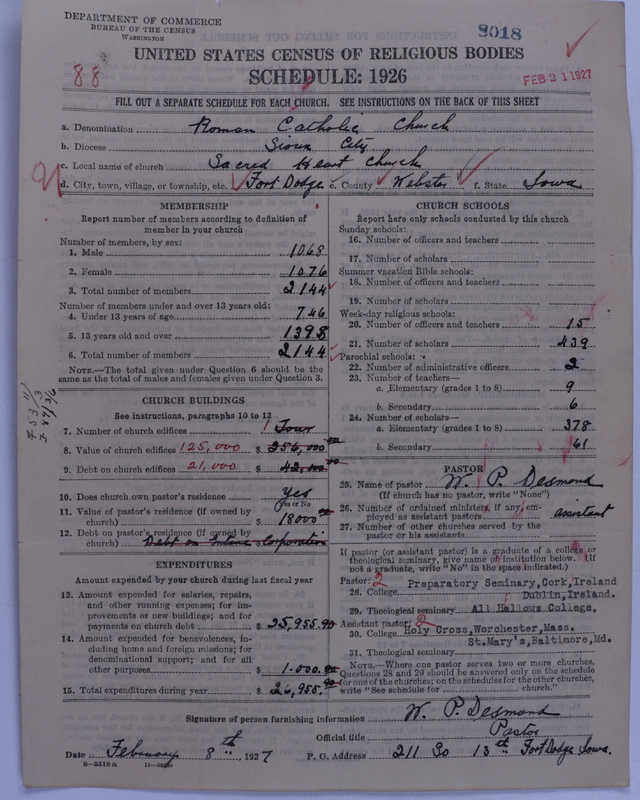 DEPARTMENT OF COMMERCE
BUREAU OF THE CENSUS
WASHINGTON
2018
UNITED STATES CENSUS OF RELIGIOUS BODIES
88
SCHEDULE: 1926
FEB 21 1927
FILL OUT A SEPARATE SCHEDULE FOR EACH CHURCH. SEE INSTRUCTIONS ON THE BACK OF THIS SHEET
a. Denomination Roman Catholic Church
b. Diocese Sioux City
c. Local name of church Sacred Heart Church
d. City, town, village, or township, etc. Fort Dodge e. County Webster f. State Iowa
MEMBERSHIP
Report number of members according to definition of
member in your church
Number of members, by sex:
1. Male 1068
2. Female 1076
3. Total number of members 2144
Number of members under and over 13 years old:
4. Under 13 years of age 746
5. 13 years old and over 1398
6. Total number of members 2144
NOTE.—The total given under Question 6 should be the
same as the total of males and females given under Question 3.
CHURCH BUILDINGS
See instructions, paragraphs 10 to 12
7. Number of church edifices 1 Four
8. Value of church edifices 125,000 $ 256,000.00
9. Debt on church edifices 21,000 $ 42,000.00
10. Does church own pastor's residence Yes
Yes or No
11. Value of pastor's residence (if owned by
church) $ 18000.00
12. Debt on pastor's residence (if owned by
church) Debt on entire Corporation
EXPENDITURES
Amount expended by your church during last fiscal year
13. Amount expended for salaries, repairs,
and other running expenses; for im-
provements or new buildings; and for
payments on church debt $ 25,955.90
14. Amount expended for benevolences, in-
cluding home and foreign missions; for
denominational support; and for all
other purposes $ 1.000.00
15. Total expenditures during year $ 26,955.90
CHURCH SCHOOLS
Report here only schools conducted by this church
Sunday schools:
16. Number of officers and teachers
17. Number of scholars
Summer vacation Bible schools:
18. Number of officers and teachers
19. Number of scholars
Week-day religious schools:
20. Number of officers and teachers 15
21. Number of scholars 439
Parochial schools:
22. Number of administrative officers 2
23. Number of teachers—
a. Elementary (grades 1 to 8) 9
b. Secondary 6
24. Number of scholars—
a. Elementary (grades 1 to 8) 378
b. Secondary 61
PASTOR
25. Name of pastor W. P. Desmond
(If church has no pastor, write "None")
26. Number of ordained ministers, if any, em-
ployed as assistant pastors assistant
27. Number of other churches served by the
pastor or his assistants
If pastor (or assistant pastor) is a graduate of a college or
theological seminary, give name of institution below. (If
not a graduate, write "No" in the space indicated.)
Pastor: 2
28. College Preparatory Seminary, Cork, Ireland
Dublin, Ireland.
29. Theological seminary All Hallows College,
Assistant pastor: 2
30. College Holy Cross, Worchester, Mass.
St. Mary's, Baltimore, Md.
31. Theological seminary
NOTE.—Where one pastor serves two or more churches,
Questions 28 and 29 should be answered only on the schedule
for one of the churches; on the schedules for the other churches,
write "See schedule for church."
Signature of person furnishing information W. P. Desmond
Official title Pastor
Date February 8th, 1927 P. O. Address 211 So 13th Fort Dodge Iowa.
8-5318a